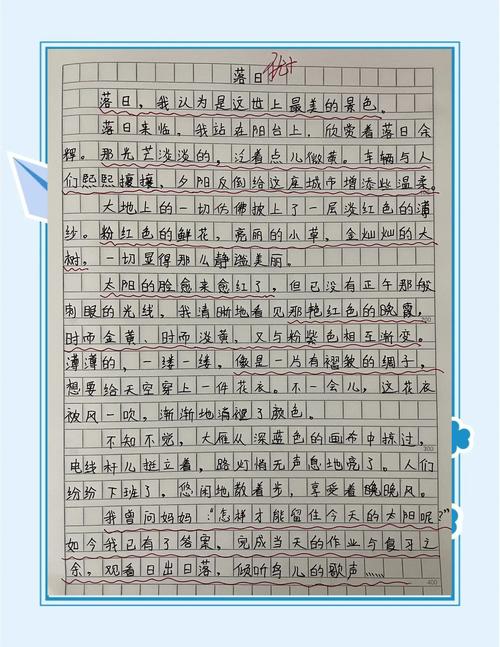 落日
落日，我认为是这世上最美的景色。
落日来临，我站在阳台上，欣赏着落日余
辉。那光芒淡淡的，泛着点儿微黄。车辆与人
们熙熙攘攘，夕阳反倒给这座城市增添些温柔。
大地上的一切仿佛披上了一层淡红色的薄
纱。粉红色的鲜花，亮丽的小草，金灿灿的大
树，一切显得那么静谧美丽。
太阳的脸愈来愈红了，但已没有正午那般
刺眼的光线，我清晰地看见那艳红色的晚霞，
时而金黄、时而淡黄，又与粉紫色相互渐变。
薄薄的，一缕一缕，像是一片有褶皱的绸子，
想要给天空穿上一件花衣。不一会儿，这花衣
被风一吹，渐渐地消褪了颜色。
不知不觉，大雁从深蓝色的画布中掠过，
电线杆儿挺立着，路灯悄无声息地亮了。人们
纷纷下班了，悠闲地散着步，享受着晚晚风。
我曾问妈妈：“怎样才能留住今天的太阳呢？”
如今我已有了答案。完成当天的作业与复习之
余，观看日出日落，倾听鸟儿的歌声……
200
300
400